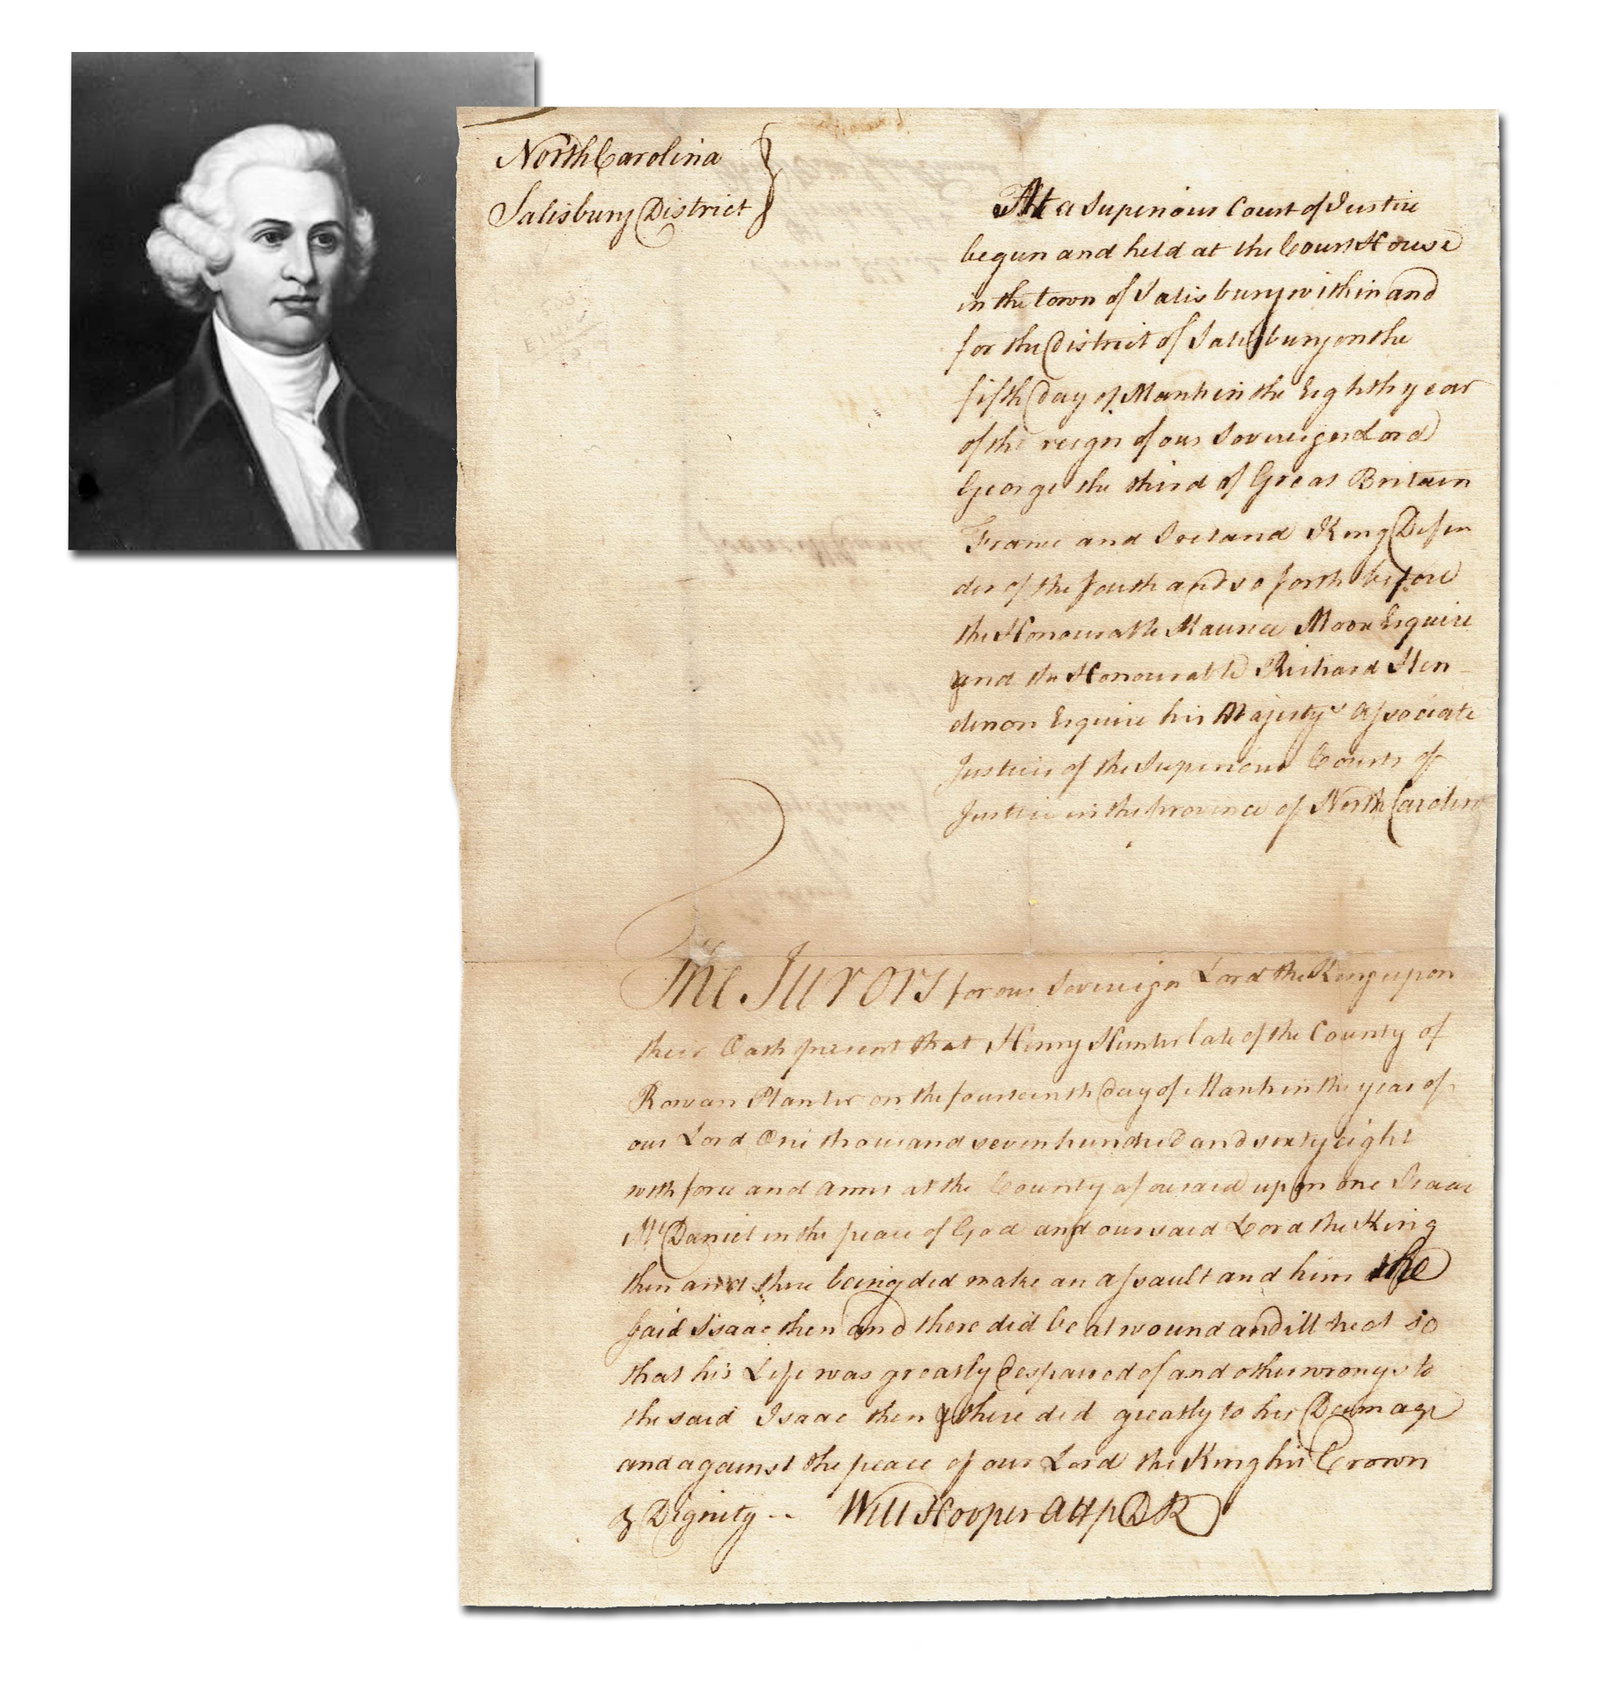 North Carolina
Salisbury District
At a Superiour Court of Justice
begun and held at the Court House
in the town of Salisbury within and
for the District of Salisbury on the
fifth Day of March in the Eighth year
of the reign of our Sovereign Lord
George the third of Great Britain
France and Ireland King Defen
der of the faith and so forth before
the Honourable Maurice Moore Esquire
and the Honourable Richard Hen-
derson Esquire his Majestys Associate
Justices of the Superiour Courts of
Justice in the province of North Carolina
The Jurors for our Sovereign Lord the King upon
their Oath present that Henry Hunter late of the County of
Rowan Planter on the fourteenth Day of March in the year of
our Lord One thousand seven hundred and sixty eight
with force and arms at the County aforesaid upon one Isaac
McDaniel in the peace of God and our said Lord the King
then and there being did make an assault and him the
said Isaac then and there did beat wound and ill treat so
that his Life was greatly Despaired of and other wrongs to
the said Isaac then & there did greatly to his Damage
and against the peace of our Lord the King his Crown
& Dignity -- Will Hooper Att p D R